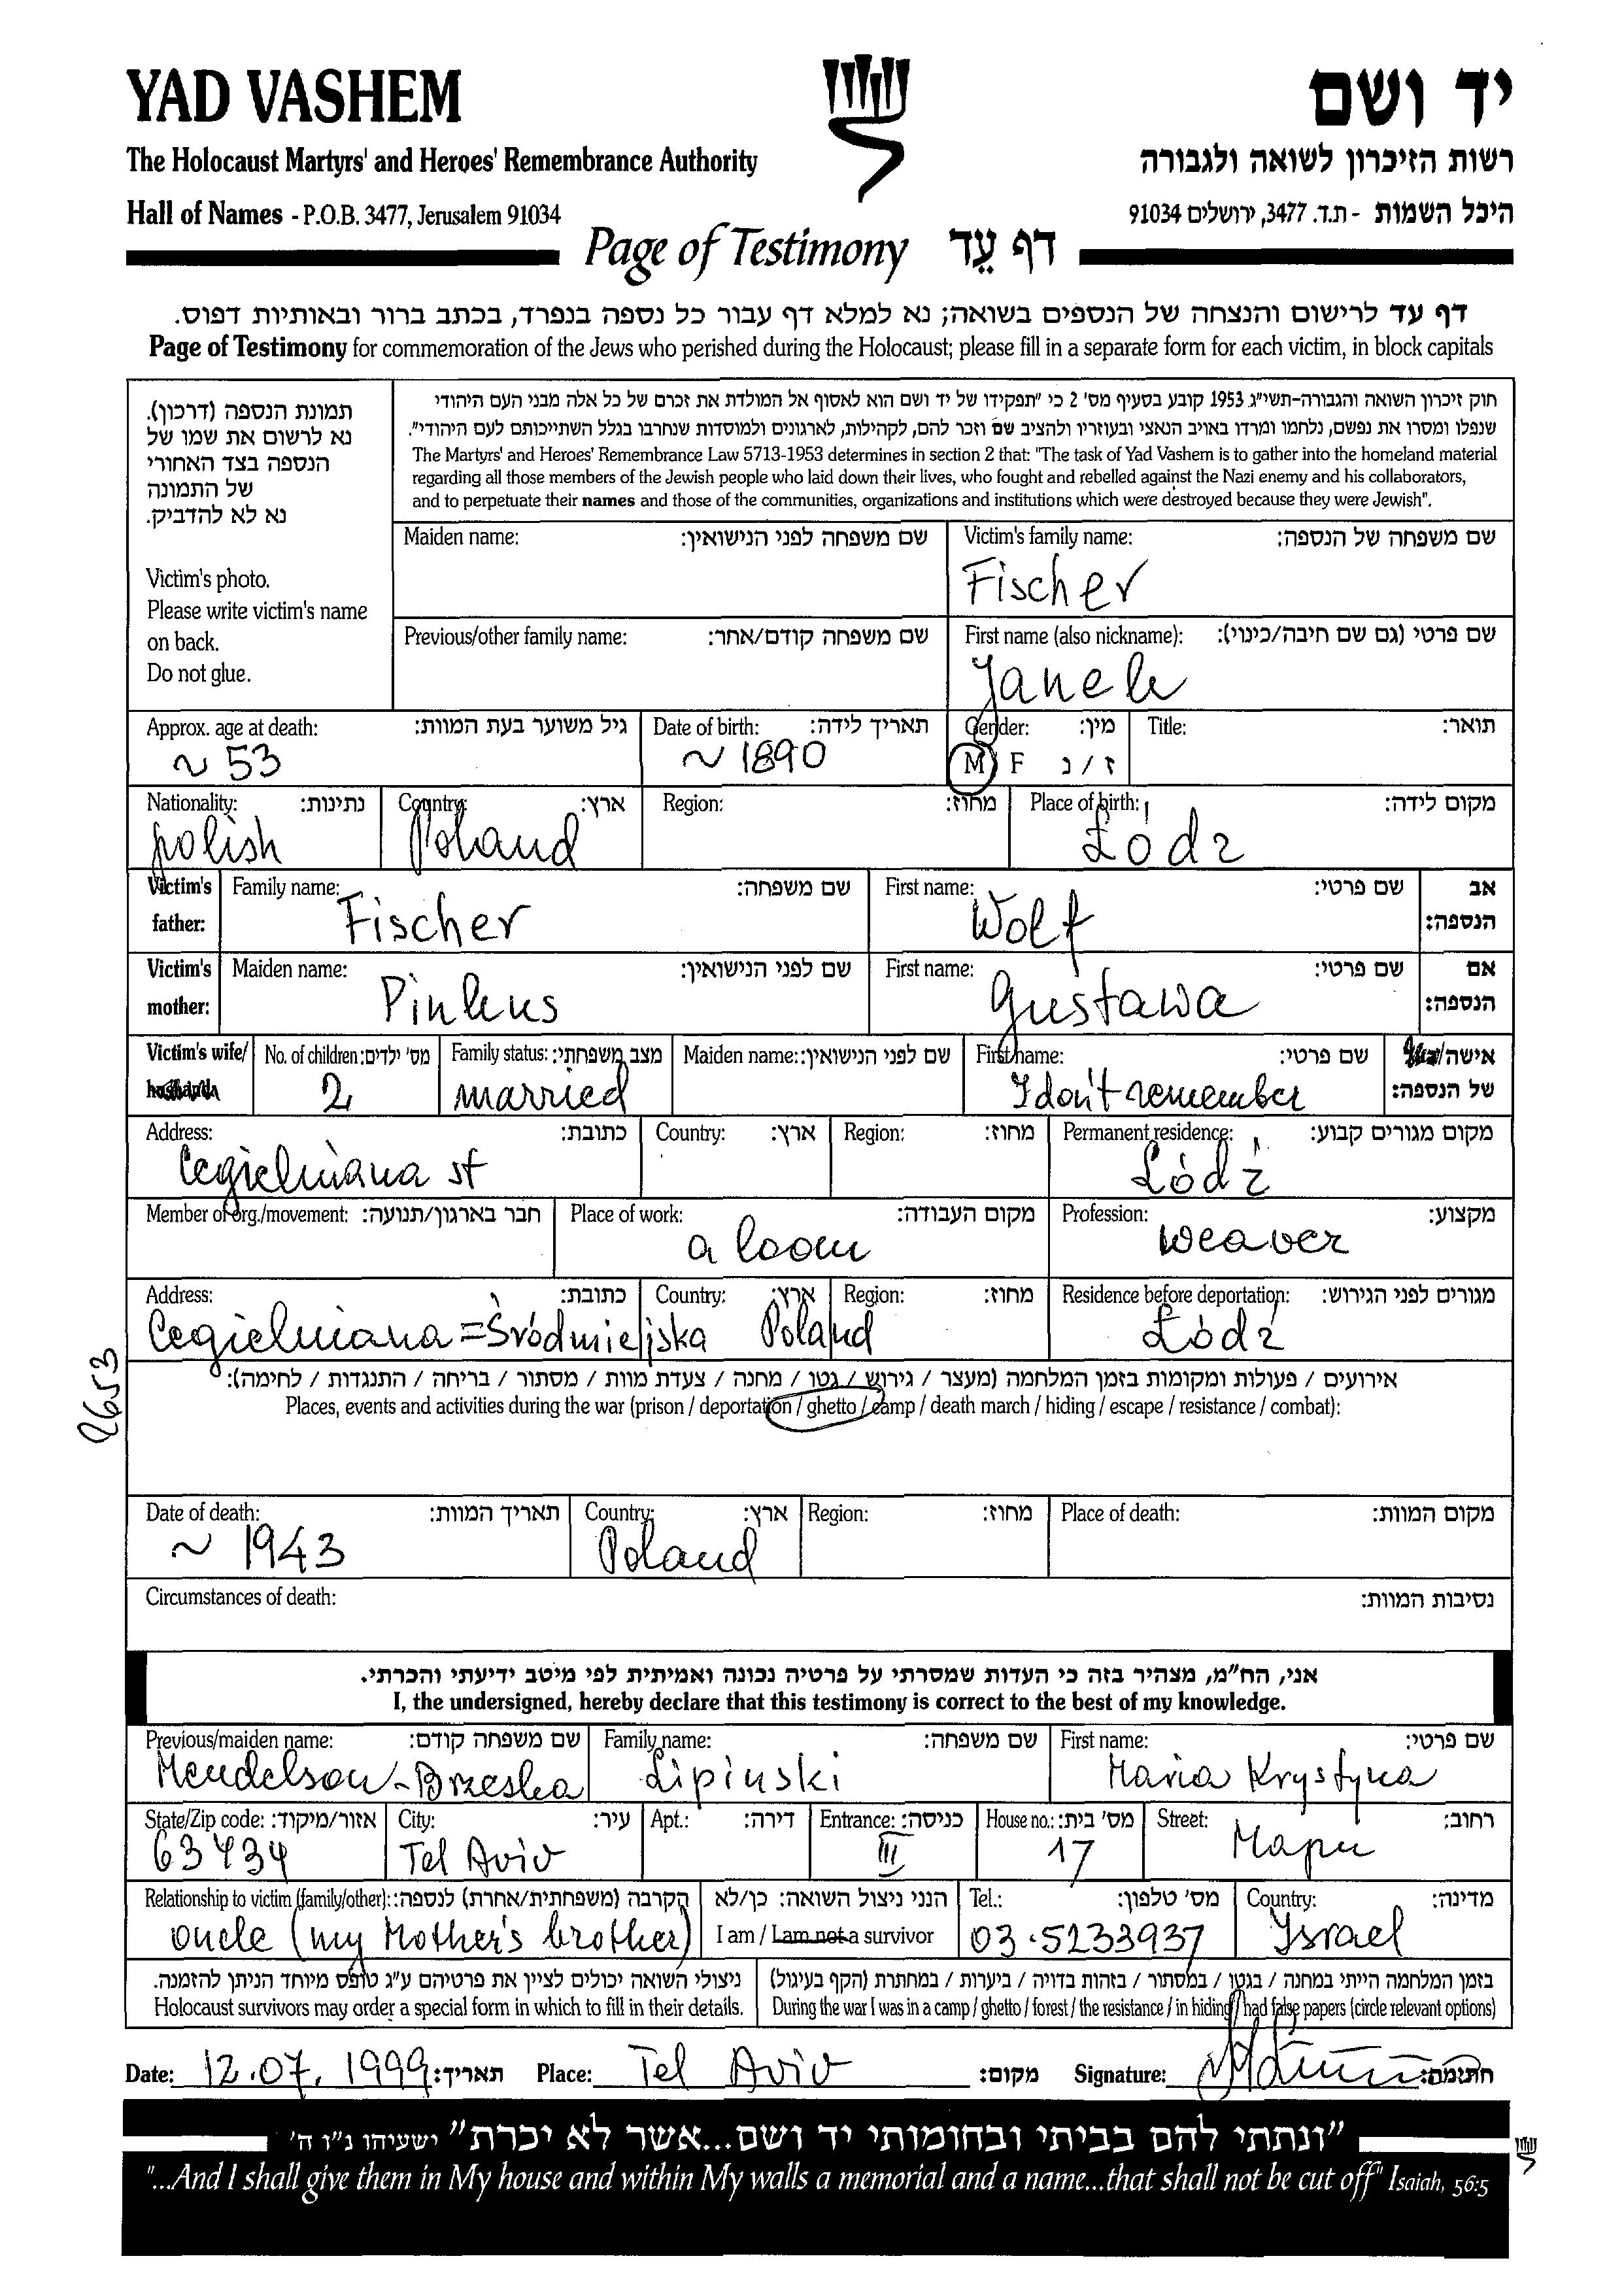 YAD VASHEM
יד ושם
The Holocaust Martyrs' and Heroes' Remembrance Authority
רשות הזיכרון לשואה ולגבורה
Hall of Names - P.O.B. 3477, Jerusalem 91034
היכל השמות - ת.ד. 3477, ירושלים 91034
Page of Testimony דף עֵד
דף עד לרישום והנצחה של הנספים בשואה; נא למלא דף עבור כל נספה בנפרד, בכתב ברור ובאותיות דפוס.
Page of Testimony for commemoration of the Jews who perished during the Holocaust; please fill in a separate form for each victim, in block capitals
תמונת הנספה (דרכון).
נא לרשום את שמו של
הנספה בצד האחורי
של התמונה
נא לא להדביק.
Victim's photo.
Please write victim's name
on back.
Do not glue.
חוק זיכרון השואה והגבורה-תשי"ג 1953 קובע בסעיף מס' 2 כי "תפקידו של יד ושם הוא לאסוף אל המולדת את זכרם של כל אלה מבני העם היהודי
שנפלו ומסרו את נפשם, נלחמו ומרדו באויב הנאצי ובעוזריו ולהציב שם וזכר להם, לקהילות, לארגונים ולמוסדות שנחרבו בגלל השתייכותם לעם היהודי".
The Martyrs' and Heroes' Remembrance Law 5713-1953 determines in section 2 that: "The task of Yad Vashem is to gather into the homeland material
regarding all those members of the Jewish people who laid down their lives, who fought and rebelled against the Nazi enemy and his collaborators,
and to perpetuate their names and those of the communities, organizations and institutions which were destroyed because they were Jewish".
Maiden name: שם משפחה לפני הנישואין:
Victim's family name: שם משפחה של הנספה:
Fischer
Previous/other family name: שם משפחה קודם/אחר:
First name (also nickname): שם פרטי (גם שם חיבה/כינוי):
Janek
Approx. age at death: גיל משוער בעת המוות:
~ 53
Date of birth: תאריך לידה:
~ 1890
Gender: מין:
M F ז / נ
Title: תואר:
Nationality: נתינות:
polish
Country: ארץ:
Poland
Region: מחוז:
Place of birth: מקום לידה:
Łódź
Victim's father: Family name: שם משפחה:
Fischer
First name: שם פרטי:
Wolf
אב הנספה:
Victim's mother: Maiden name: שם לפני הנישואין:
Pinkus
First name: שם פרטי:
Gustawa
אם הנספה:
Victim's wife/
No. of children: מס' ילדים:
2
Family status: מצב משפחתי:
married
Maiden name: שם לפני הנישואין:
First name: שם פרטי:
I don't remember
אישה/
של הנספה:
Address: כתובת:
Cegielniana st
Country: ארץ:
Region: מחוז:
Permanent residence: מקום מגורים קבוע:
Łódź
Member of org./movement: חבר בארגון/תנועה:
Place of work: מקום העבודה:
a loom
Profession: מקצוע:
weaver
Address: כתובת:
Cegielniana = Śródmiejska
Country: ארץ:
Poland
Region: מחוז:
Residence before deportation: מגורים לפני הגירוש:
Łódź
2653
אירועים / פעולות ומקומות בזמן המלחמה (מעצר / גירוש / גטו / מחנה / צעדת מוות / מסתור / בריחה / התנגדות / לחימה):
Places, events and activities during the war (prison / deportation / ghetto / camp / death march / hiding / escape / resistance / combat):
Date of death: תאריך המוות:
~ 1943
Country: ארץ:
Poland
Region: מחוז:
Place of death: מקום המוות:
Circumstances of death: נסיבות המוות:
אני, הח"מ, מצהיר בזה כי העדות שמסרתי על פרטיה נכונה ואמיתית לפי מיטב ידיעתי והכרתי.
I, the undersigned, hereby declare that this testimony is correct to the best of my knowledge.
Previous/maiden name: שם משפחה קודם:
Mendelson-Brzeska
Family name: שם משפחה:
Lipinski
First name: שם פרטי:
Maria Krystyna
State/Zip code: אזור/מיקוד:
63434
City: עיר:
Tel Aviv
Apt.: דירה:
Entrance: כניסה:
III
House no.: מס' בית:
17
Street: רחוב:
Mapu
Relationship to victim (family/other): הקרבה (משפחתית/אחרת) לנספה:
oncle (my Mother's brother)
הנני ניצול השואה: כן/לא
I am / I am not a survivor
Tel.: מס' טלפון:
03-5233937
Country: מדינה:
Israel
ניצולי השואה יכולים לציין את פרטיהם ע"ג טופס מיוחד הניתן להזמנה.
Holocaust survivors may order a special form in which to fill in their details.
בזמן המלחמה הייתי במחנה / בגטו / במסתור / בזהות בדויה / ביערות / במחתרת (הקף בעיגול)
During the war I was in a camp / ghetto / forest / the resistance / in hiding / had false papers (circle relevant options)
Date: 12.07.1999 תאריך: Place: Tel Aviv מקום: Signature: חתימה:
"ונתתי להם בביתי ובחומותי יד ושם...אשר לא יכרת" ישעיהו נ"ו ה'
"...And I shall give them in My house and within My walls a memorial and a name...that shall not be cut off" Isaiah, 56:5